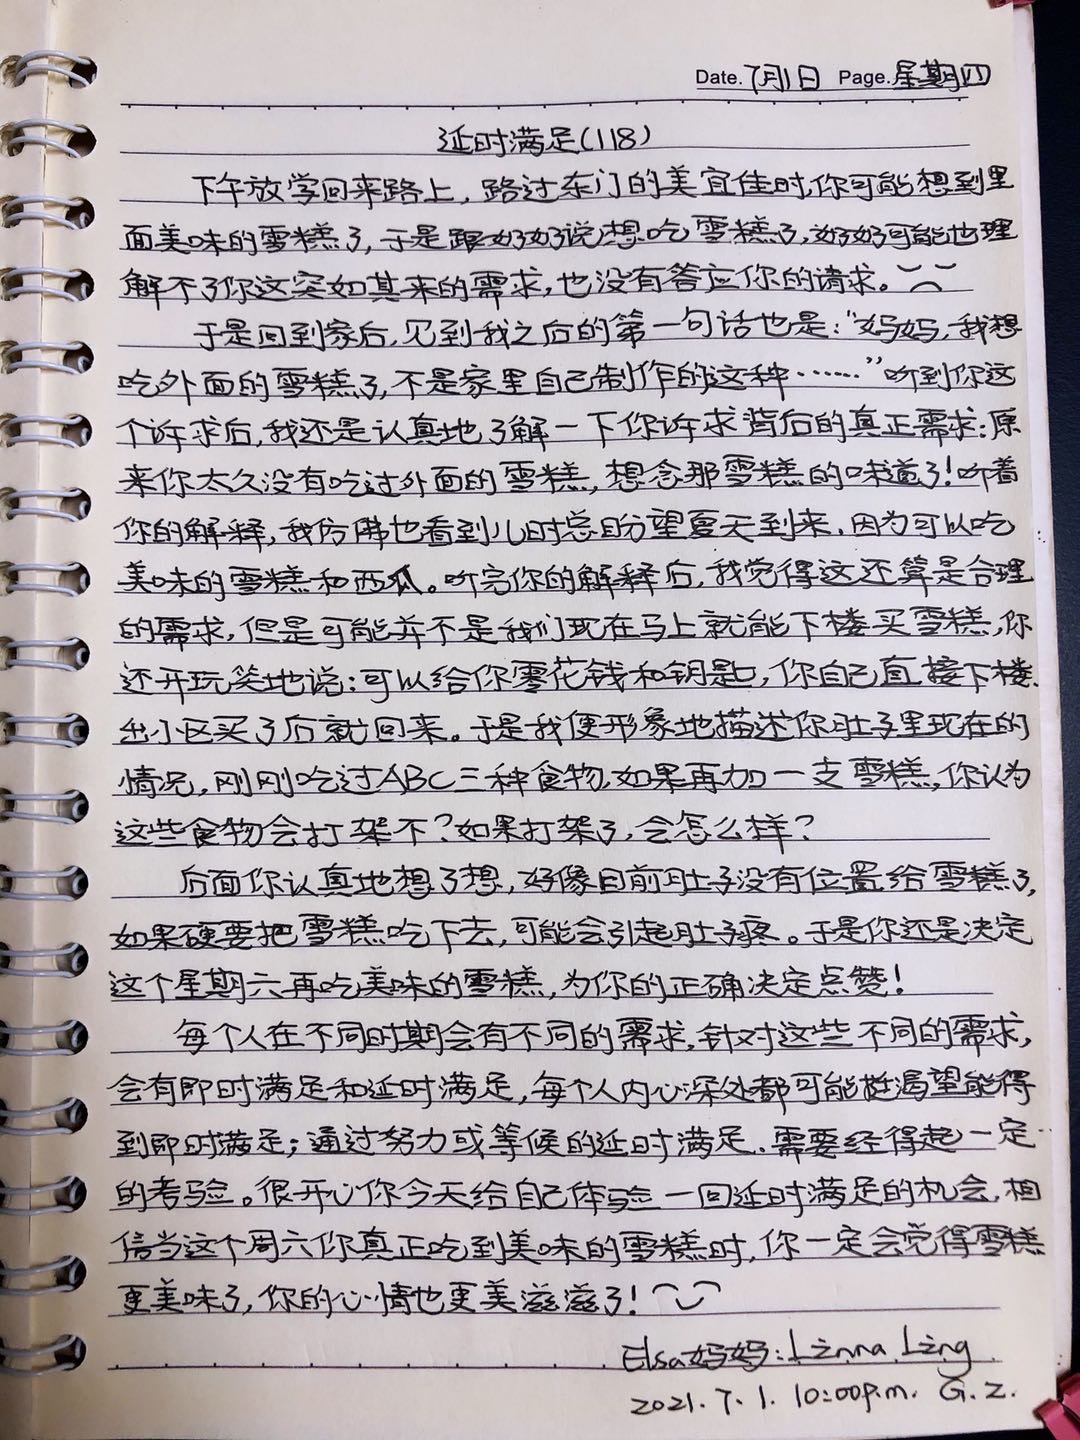 Date. 7月1日 Page. 星期四
延时满足(118)
下午放学回来路上，路过东门的美宜佳时，你可能想到里
面美味的雪糕了，于是跟奶奶说想吃雪糕了，奶奶可能也理
解不了你这突如其来的需求，也没有答应你的请求。
于是回到家后，见到我之后的第一句话也是：“妈妈，我想
吃外面的雪糕了，不是家里自己制作的这种……”听到你这
个诉求后，我还是认真地了解一下你诉求背后的真正需求：原
来你太久没有吃过外面的雪糕，想念那雪糕的味道了！听着
你的解释，我仿佛也看到儿时总盼望夏天到来，因为可以吃
美味的雪糕和西瓜。听完你的解释后，我觉得这还算是合理
的需求，但是可能并不是我们现在马上就能下楼买雪糕，你
还开玩笑地说：可以给你零花钱和钥匙，你自己直接下楼
出小区买了后就回来。于是我便形象地描述你肚子里现在的
情况，刚刚吃过ABC三种食物，如果再加一支雪糕，你认为
这些食物会打架不？如果打架了，会怎么样？
后面你认真地想了想，好像目前肚子没有位置给雪糕了，
如果硬要把雪糕吃下去，可能会引起肚子疼。于是你还是决定
这个星期六再吃美味的雪糕，为你的正确决定点赞！
每个人在不同时期会有不同的需求，针对这些不同的需求，
会有即时满足和延时满足，每个人内心深处都可能挺渴望能得
到即时满足；通过努力或等候的延时满足，需要经得起一定
的考验。很开心你今天给自己体验一回延时满足的机会，相
信当这个周六你真正吃到美味的雪糕时，你一定会觉得雪糕
更美味了，你的心情也更美滋滋了！
Elsa妈妈：Linna Ling
2021.7.1. 10:00p.m. G.Z.